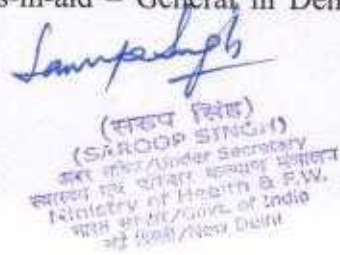 s-in-aid – General in Den
(सरुप सिंह)
(SAROOP SINGH)
अवर सचिव/Under Secretary
स्वास्थ्य एवं परिवार कल्याण मंत्रालय
Ministry of Health & F.W.
भारत सरकार/Govt. of India
नई दिल्ली/New Delhi